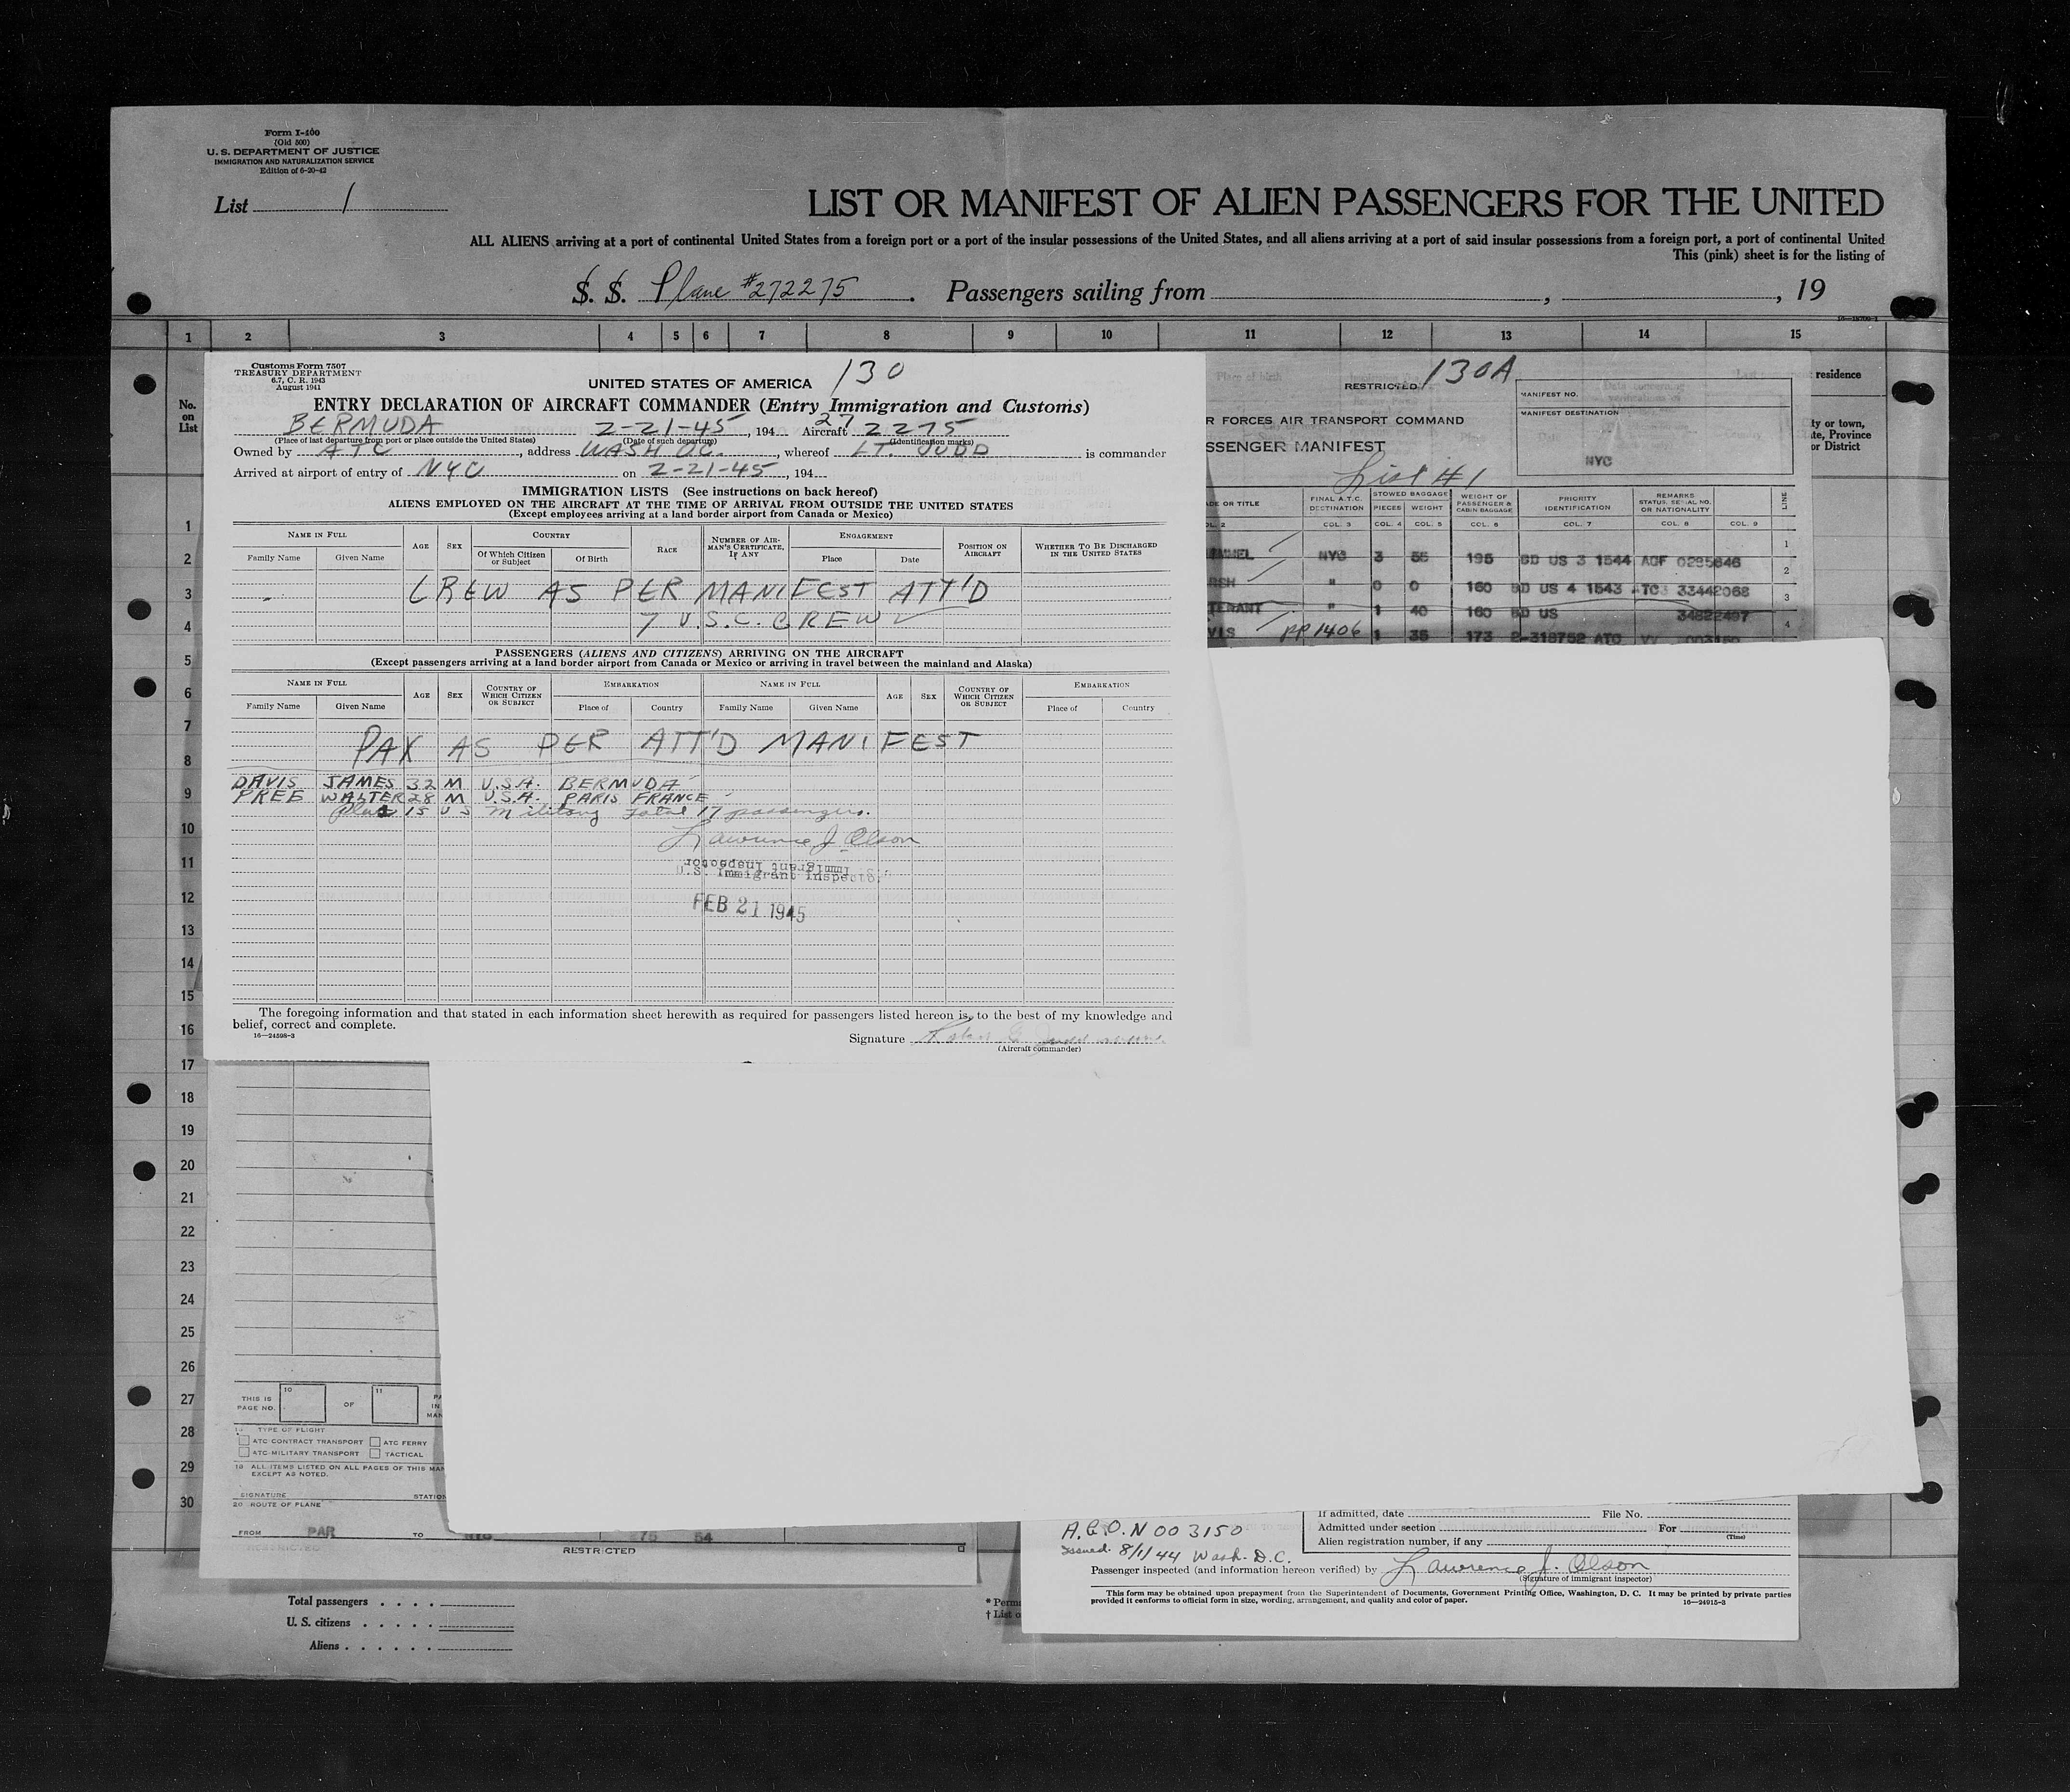 Form I-400
(Old 500)
U. S. DEPARTMENT OF JUSTICE
IMMIGRATION AND NATURALIZATION SERVICE
Edition of 6-20-42
List 1
LIST OR MANIFEST OF ALIEN PASSENGERS FOR THE UNITED
ALL ALIENS arriving at a port of continental United States from a foreign port or a port of the insular possessions of the United States, and all aliens arriving at a port of said insular possessions from a foreign port, a port of continental United
This (pink) sheet is for the listing of
S. S. Plane #272275. Passengers sailing from , , 19
1 2 3 4 5 6 7 8 9 10 11 12 13 14 15
No. on List
residence
or District
Customs Form 7507
TREASURY DEPARTMENT
6.7, C. R. 1943
August 1941
130
UNITED STATES OF AMERICA
ENTRY DECLARATION OF AIRCRAFT COMMANDER (Entry Immigration and Customs)
BERMUDA 2-21-45, 194 Aircraft 27 2275
(Place of last departure from port or place outside the United States) (Date of such departure) (Identification marks)
Owned by ATC, address WASH DC., whereof LT. JUDD is commander
Arrived at airport of entry of NYC on 2-21-45, 194
IMMIGRATION LISTS (See instructions on back hereof)
ALIENS EMPLOYED ON THE AIRCRAFT AT THE TIME OF ARRIVAL FROM OUTSIDE THE UNITED STATES
(Except employees arriving at a land border airport from Canada or Mexico)
NAME IN FULL AGE SEX COUNTRY RACE NUMBER OF AIRMAN'S CERTIFICATE, IF ANY ENGAGEMENT POSITION ON AIRCRAFT WHETHER TO BE DISCHARGED IN THE UNITED STATES
Family Name Given Name Of Which Citizen or Subject Of Birth Place Date
CREW AS PER MANIFEST ATT'D
7 U.S.C. CREW
PASSENGERS (ALIENS AND CITIZENS) ARRIVING ON THE AIRCRAFT
(Except passengers arriving at a land border airport from Canada or Mexico or arriving in travel between the mainland and Alaska)
NAME IN FULL AGE SEX COUNTRY OF WHICH CITIZEN OR SUBJECT EMBARKATION NAME IN FULL AGE SEX COUNTRY OF WHICH CITIZEN OR SUBJECT EMBARKATION
Family Name Given Name Place of Country Family Name Given Name Place of Country
PAX AS PER ATT'D MANIFEST
DAVIS JAMES 32 M U.S.A. BERMUDA
PREE WALTER 28 M U.S.A. PARIS FRANCE
Plus 15 US Military Total 17 passengers.
Lawrence J. Olson
U.S. Immigrant Inspector
U.S. Immigrant Inspector
FEB 21 1945
The foregoing information and that stated in each information sheet herewith as required for passengers listed hereon is, to the best of my knowledge and
belief, correct and complete.
16—24598-3
Signature
(Aircraft commander)
RESTRICTED 130A
R FORCES AIR TRANSPORT COMMAND
SSENGER MANIFEST
List #1
MANIFEST NO.
MANIFEST DESTINATION
NYC
DE OR TITLE FINAL A.T.C. DESTINATION STOWED BAGGAGE PIECES WEIGHT WEIGHT OF PASSENGER & CABIN BAGGAGE PRIORITY IDENTIFICATION REMARKS STATUS, SERIAL NO. OR NATIONALITY LINE
COL. 3 COL. 4 COL. 5 COL. 6 COL. 7 COL. 8 COL. 9
NYC 3 55 195 BD US 3 1544 AGF 0285646 1
RSH " 0 0 160 BD US 4 1543 ATC 33442068 2
TENANT " 1 40 160 BD US 34822497 3
VIS PP 1406 1 35 173 2-318752 ATC 4
1
2
3
4
5
6
7
8
9
10
11
12
13
14
15
16
17
18
19
20
21
22
23
24
25
26
27
28
29
30
THIS IS PAGE NO. 10 OF 11
TYPE OF FLIGHT
ATC-CONTRACT TRANSPORT ATC FERRY
ATC-MILITARY TRANSPORT TACTICAL
19 ALL ITEMS LISTED ON ALL PAGES OF THIS MAN
EXCEPT AS NOTED.
SIGNATURE STATION
20 ROUTE OF PLANE
FROM PAR TO 275 54
RESTRICTED
Total passengers
U. S. citizens
Aliens
* Perma
† List o
If admitted, date File No.
Admitted under section For
(Time)
Alien registration number, if any
A.G.O. N 003150
Issued 8/1/44 Wash. D.C.
Passenger inspected (and information hereon verified) by Lawrence J. Olson
(Signature of immigrant inspector)
This form may be obtained upon prepayment from the Superintendent of Documents, Government Printing Office, Washington, D. C. It may be printed by private parties
provided it conforms to official form in size, wording, arrangement, and quality and color of paper.
16—24915-3